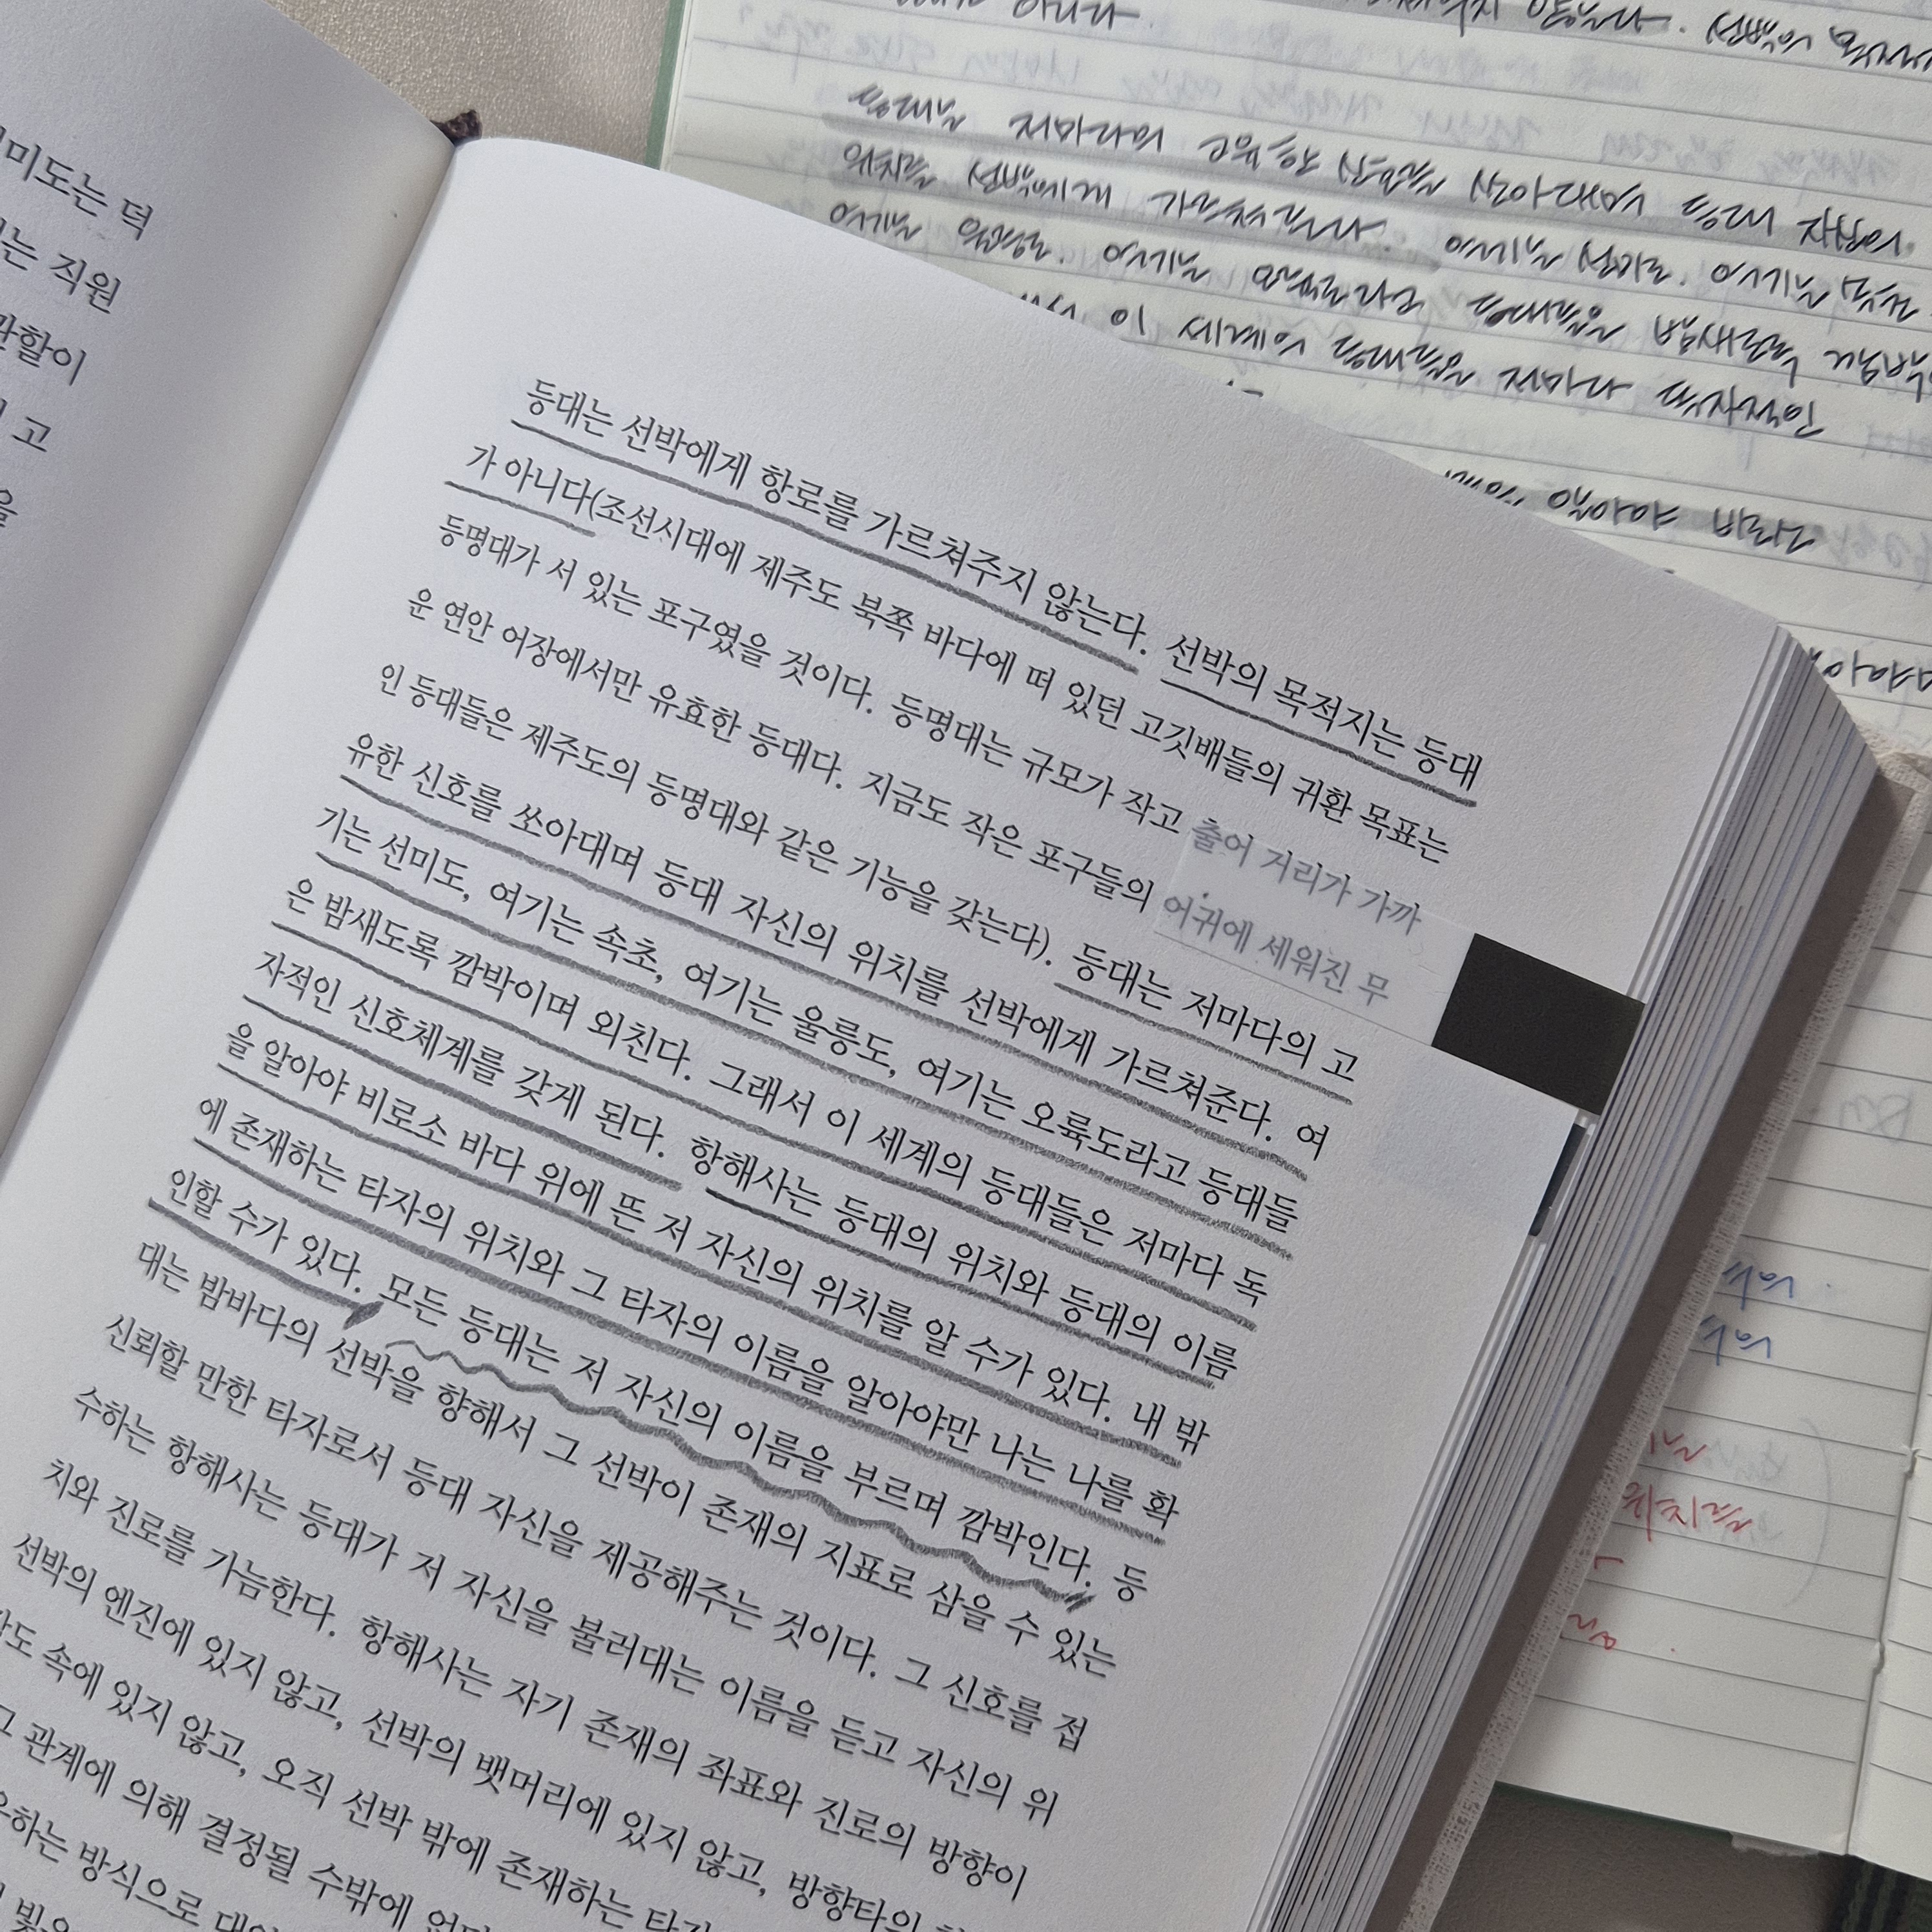 미도는 덕
는 직원
관할이
고
을
등대는 선박에게 항로를 가르쳐주지 않는다. 선박의 목적지는 등대
가 아니다(조선시대에 제주도 북쪽 바다에 떠 있던 고깃배들의 귀환 목표는
등명대가 서 있는 포구였을 것이다. 등명대는 규모가 작고 출어 거리가 가까
운 연안 어장에서만 유효한 등대다. 지금도 작은 포구들의 어귀에 세워진 무
인 등대들은 제주도의 등명대와 같은 기능을 갖는다). 등대는 저마다의 고
유한 신호를 쏘아대며 등대 자신의 위치를 선박에게 가르쳐준다. 여
기는 선미도, 여기는 속초, 여기는 울릉도, 여기는 오륙도라고 등대들
은 밤새도록 깜박이며 외친다. 그래서 이 세계의 등대들은 저마다 독
자적인 신호체계를 갖게 된다. 항해사는 등대의 위치와 등대의 이름
을 알아야 비로소 바다 위에 뜬 저 자신의 위치를 알 수가 있다. 내 밖
에 존재하는 타자의 위치와 그 타자의 이름을 알아야만 나는 나를 확
인할 수가 있다. 모든 등대는 저 자신의 이름을 부르며 깜박인다. 등
대는 밤바다의 선박을 향해서 그 선박이 존재의 지표로 삼을 수 있는
신뢰할 만한 타자로서 등대 자신을 제공해주는 것이다. 그 신호를 접
수하는 항해사는 등대가 저 자신을 불러대는 이름을 듣고 자신의 위
치와 진로를 가늠한다. 항해사는 자기 존재의 좌표와 진로의 방향이
선박의 엔진에 있지 않고, 선박의 뱃머리에 있지 않고, 방향타의
속에 있지 않고, 오직 선박 밖에 존재하는
관계에 의해 결정될 수밖에
하는 방식으로
아니다.
등대는 저마다의 고유한 신호를 쏘아대며 등대 자신의
위치를 선박에게 가르쳐준다. 여기는 선미도. 여기는 속초
여기는 울릉도. 여기는 오륙도라고 등대들은 밤새도록
이 세계의 등대들은 저마다 독자적인
위치를